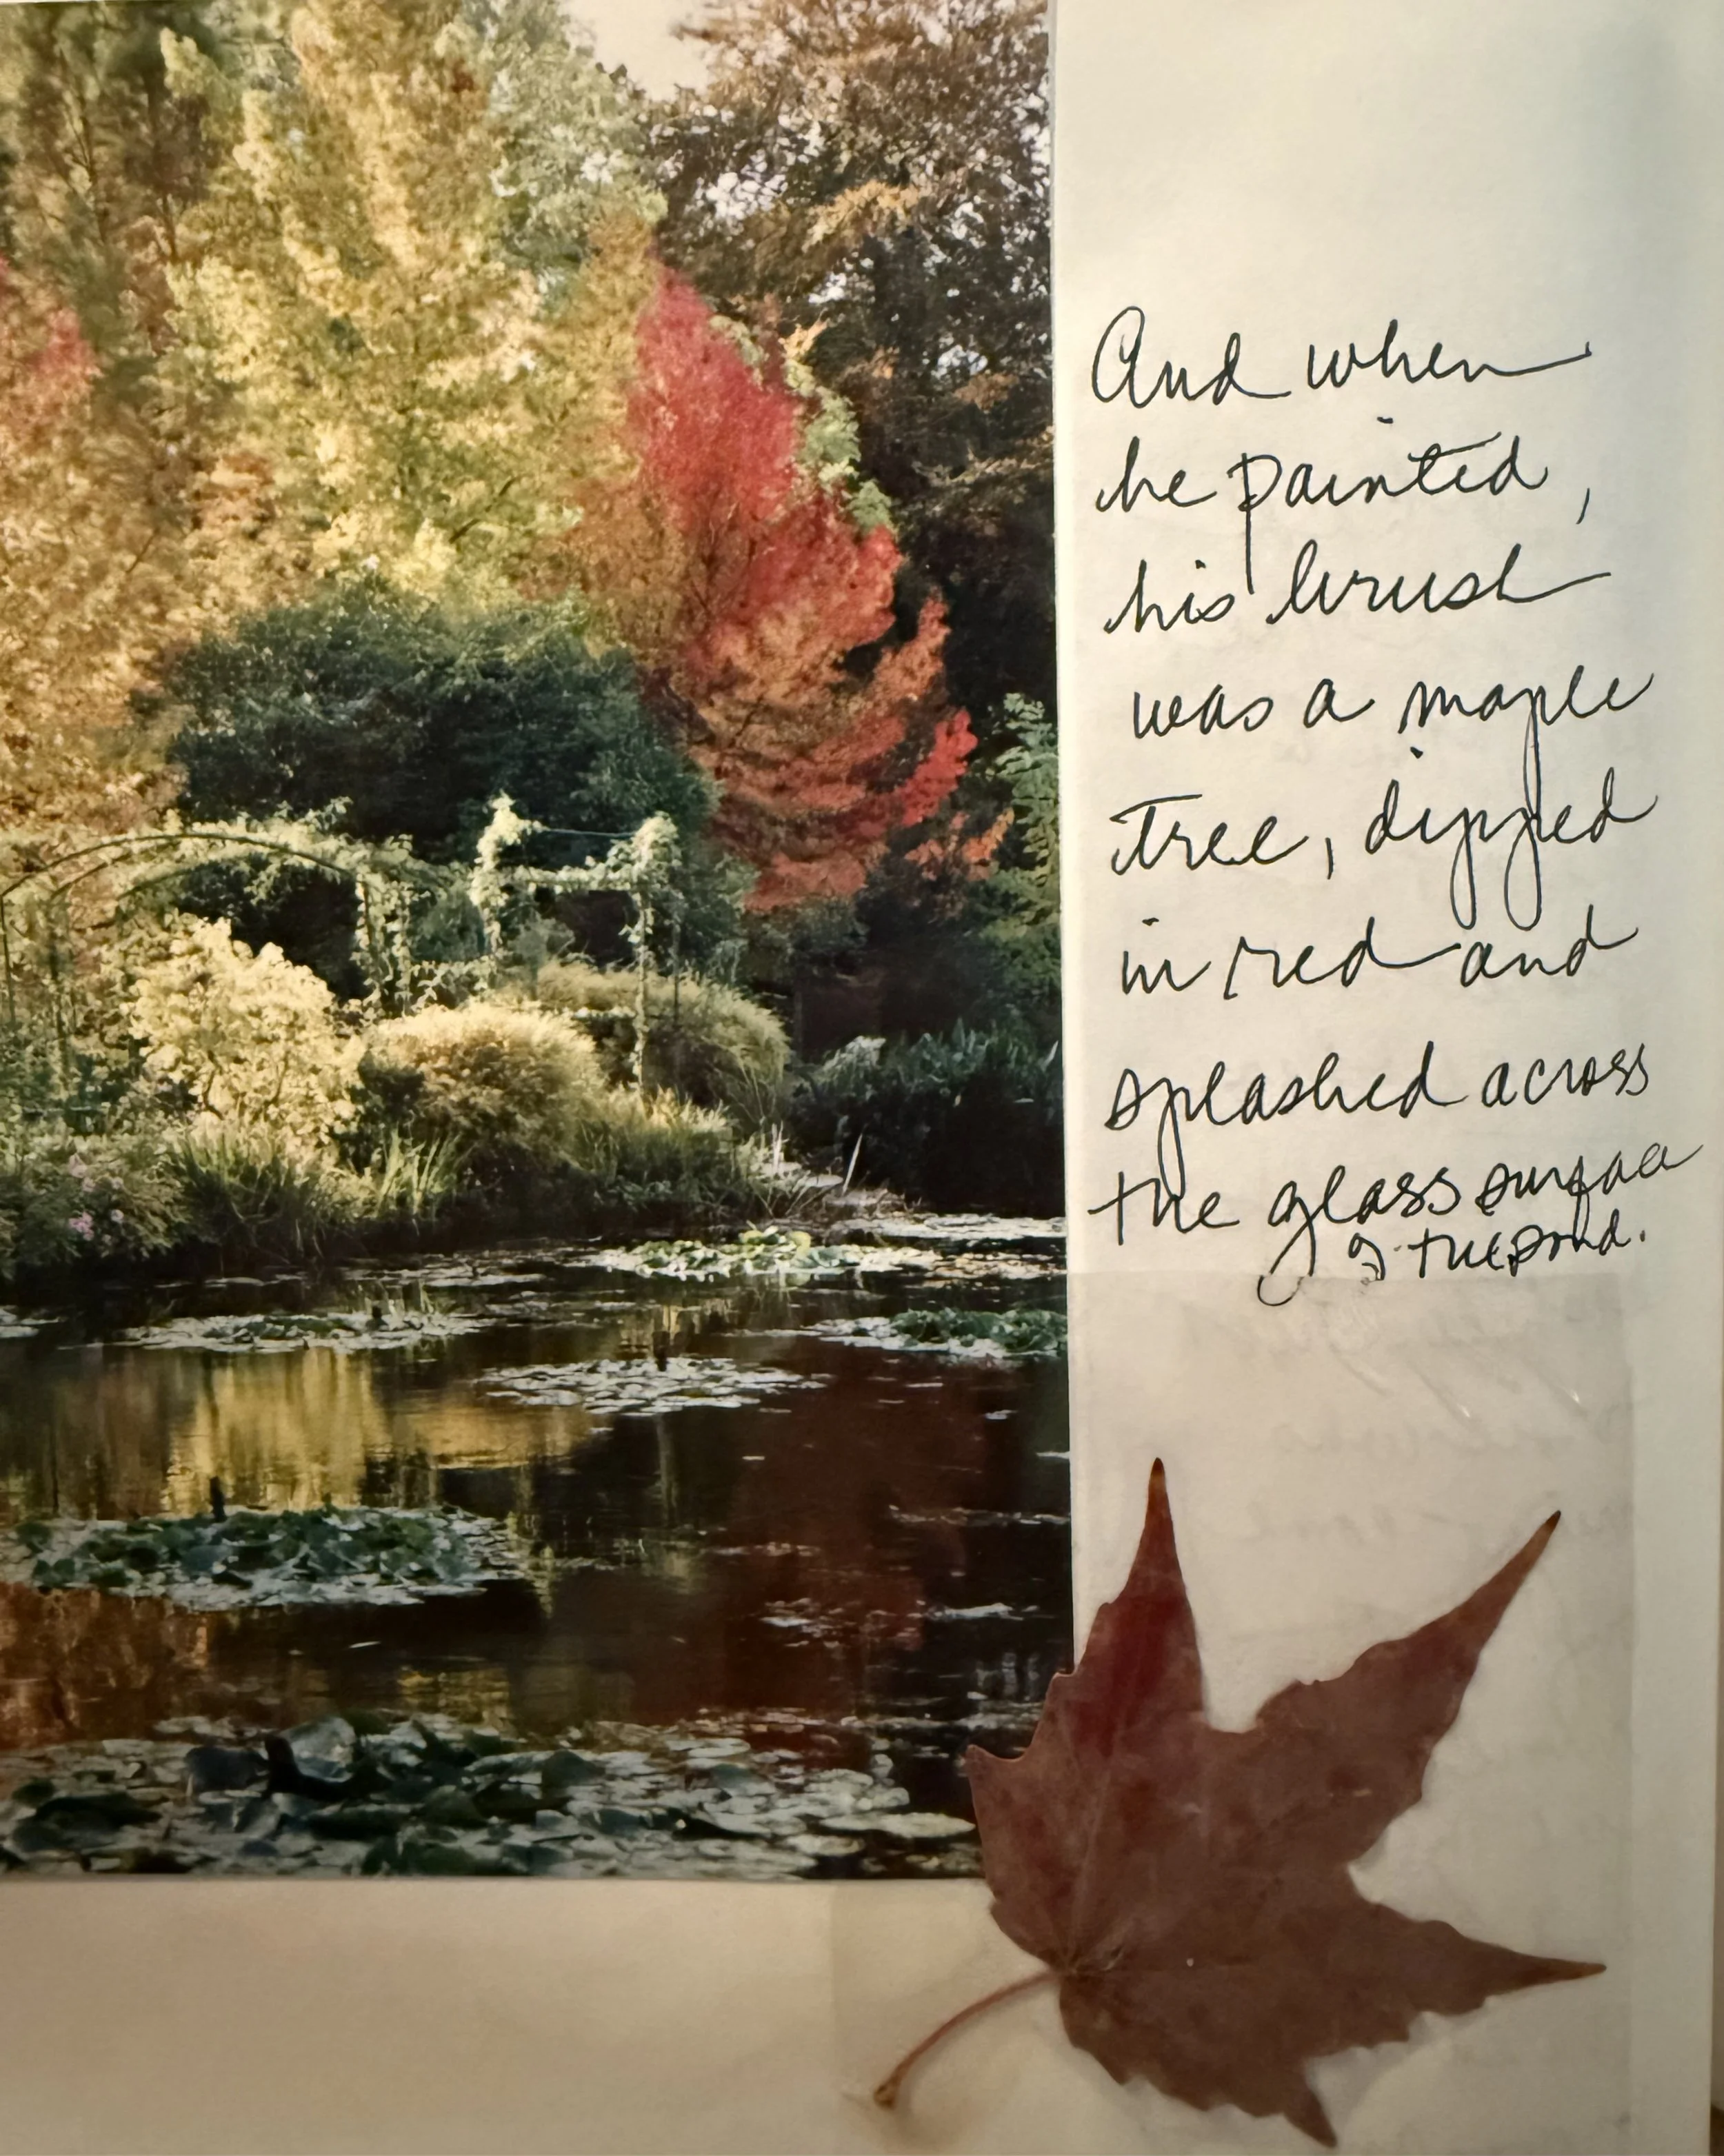 And when
he painted,
his brush
was a maple
tree, dipped
in red and
splashed across
the glass surface
of the pond.